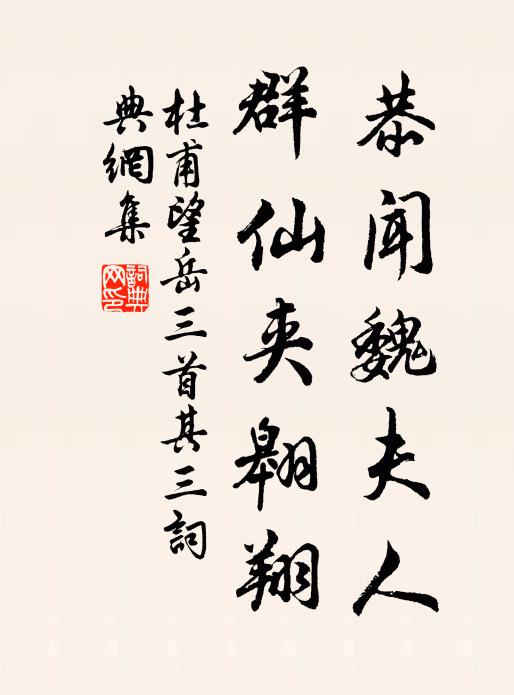 恭闻魏夫人
群仙夹翱翔
杜甫望岳三首其三詞
典網集
詞典
网印